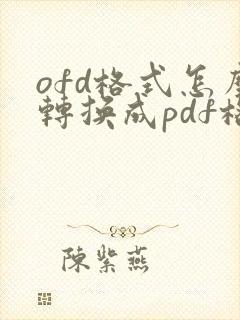 ofd格式怎麼
轉換成pdf格
陳紫燕